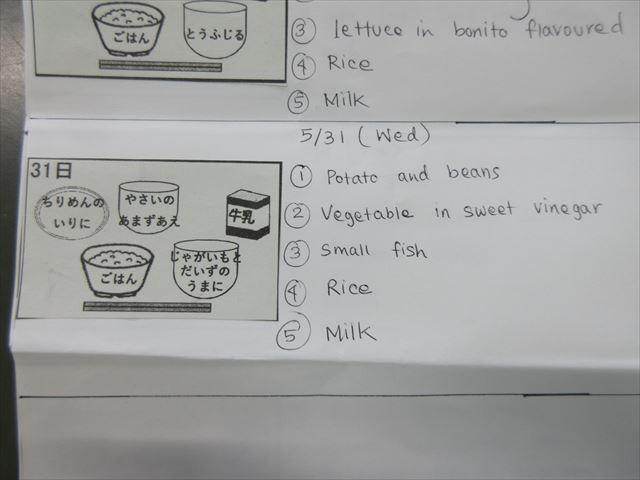 ごはん
とうふじる
③ lettuce in bonito flavoured
④ Rice
⑤ Milk
5/31 (Wed)
31日
ちりめんの
いりに
やさいの
あまずあえ
牛乳
ごはん
じゃがいもと
だいずの
うまに
① Potato and beans
② Vegetable in sweet vinegar
③ Small fish
④ Rice
⑤ Milk